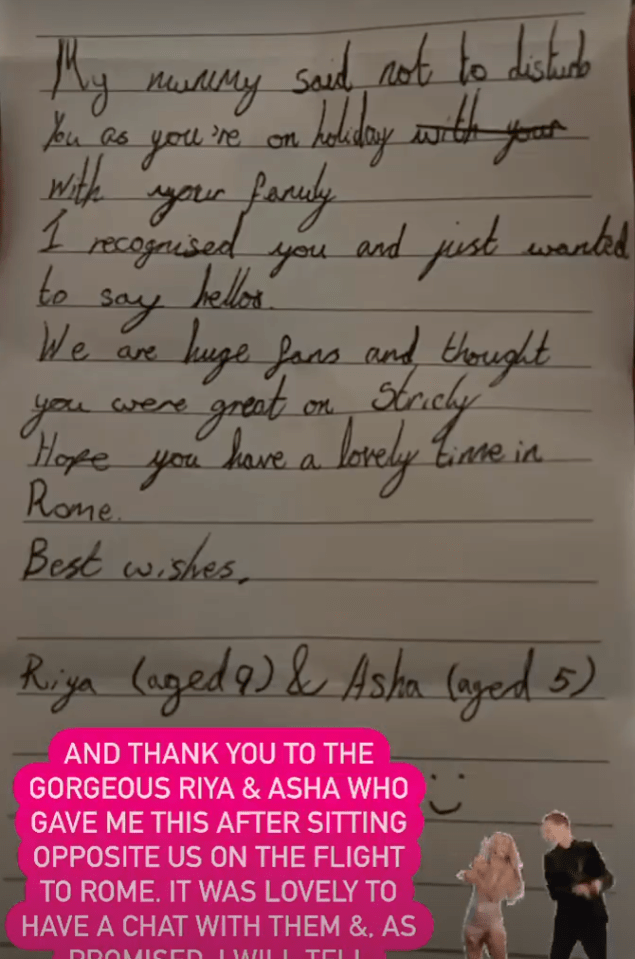 My mummy said not to disturb
You as you're on holiday with your
with your family
I recognised you and just wanted
to say hello
We are huge fans and thought
you were great on Stricly
Hope you have a lovely time in
Rome.
Best wishes,
Riya (aged 9) & Asha (aged 5)
AND THANK YOU TO THE
GORGEOUS RIYA & ASHA WHO
GAVE ME THIS AFTER SITTING
OPPOSITE US ON THE FLIGHT
TO ROME. IT WAS LOVELY TO
HAVE A CHAT WITH THEM &, AS
PROMISED, I WILL TELL